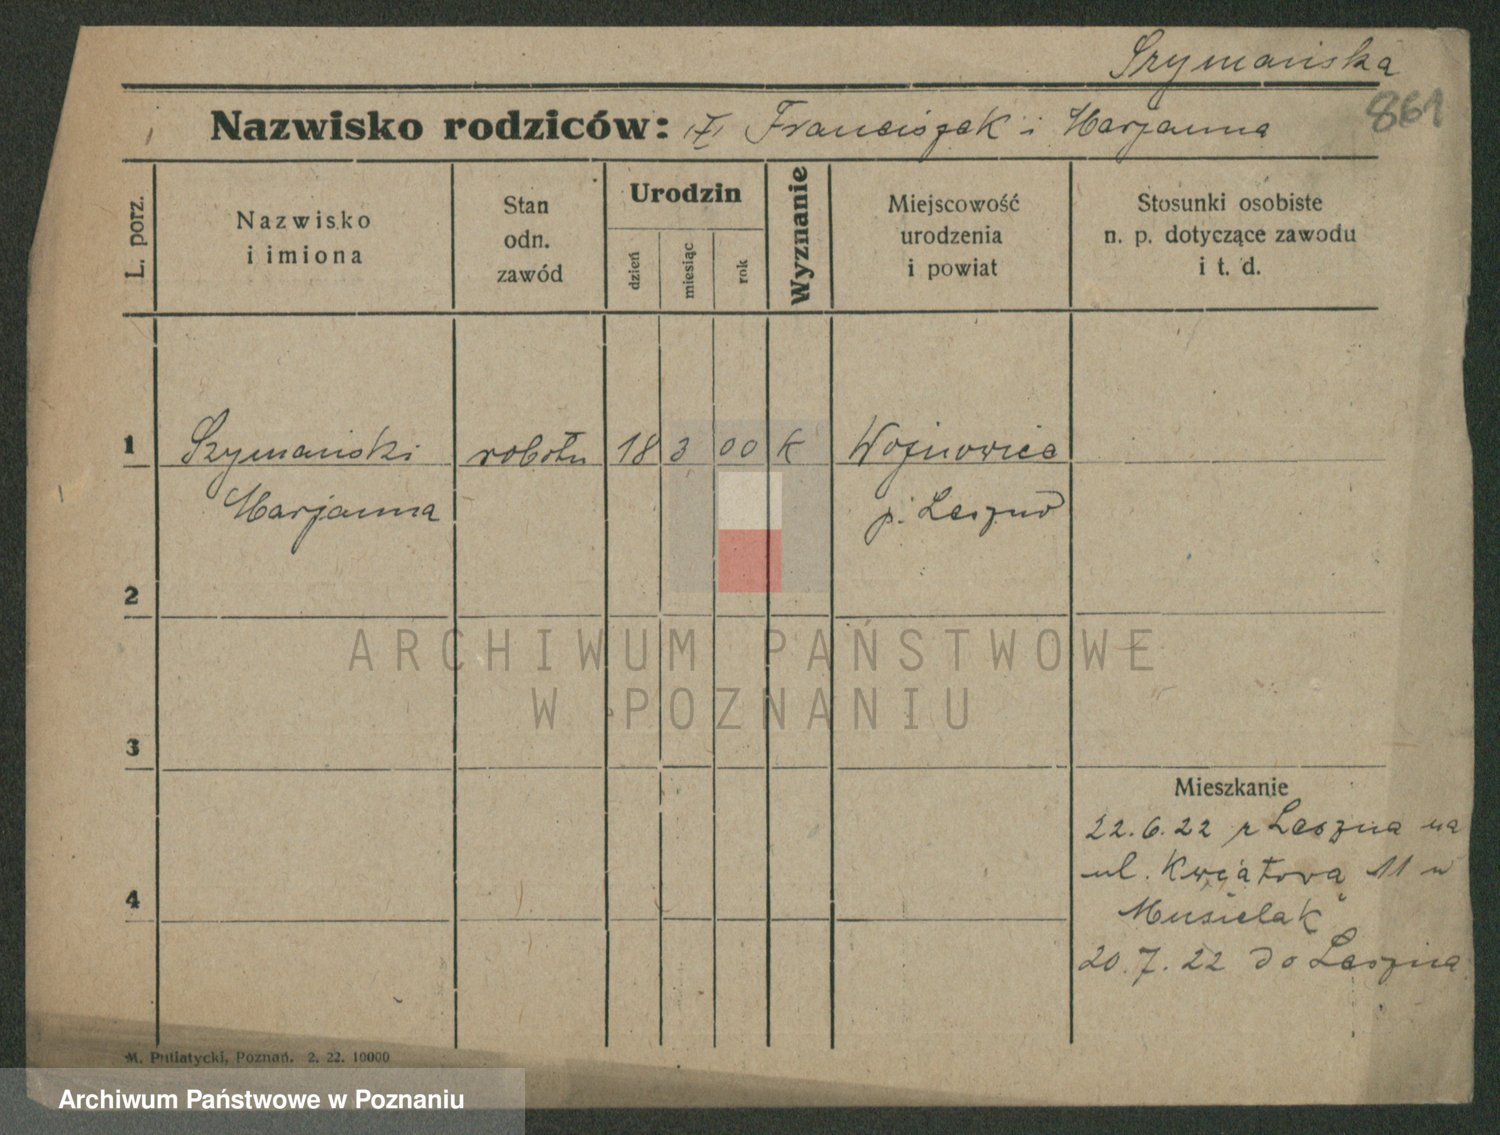 Szymańska
861
Nazwisko rodziców: Franciszek i Marjanna
L. porz.
Nazwisko
i imiona
Stan
odn.
zawód
Urodzin
dzień
miesiąc
rok
Wyznanie
Miejscowość
urodzenia
i powiat
Stosunki osobiste
n. p. dotyczące zawodu
i t. d.
1 Szymański robotn 18 3 00 K Wojnowice
Marjanna p. Leszno
2
ARCHIWUM PAŃSTWOWE
W POZNANIU
3
Mieszkanie
22.6.22 z Leszna na
ul. Kwiatova 11 u
4
Musielak"
20.7.22 do Leszna
M. Putiatycki, Poznań. 2. 22. 10000
Archiwum Państwowe w Poznaniu